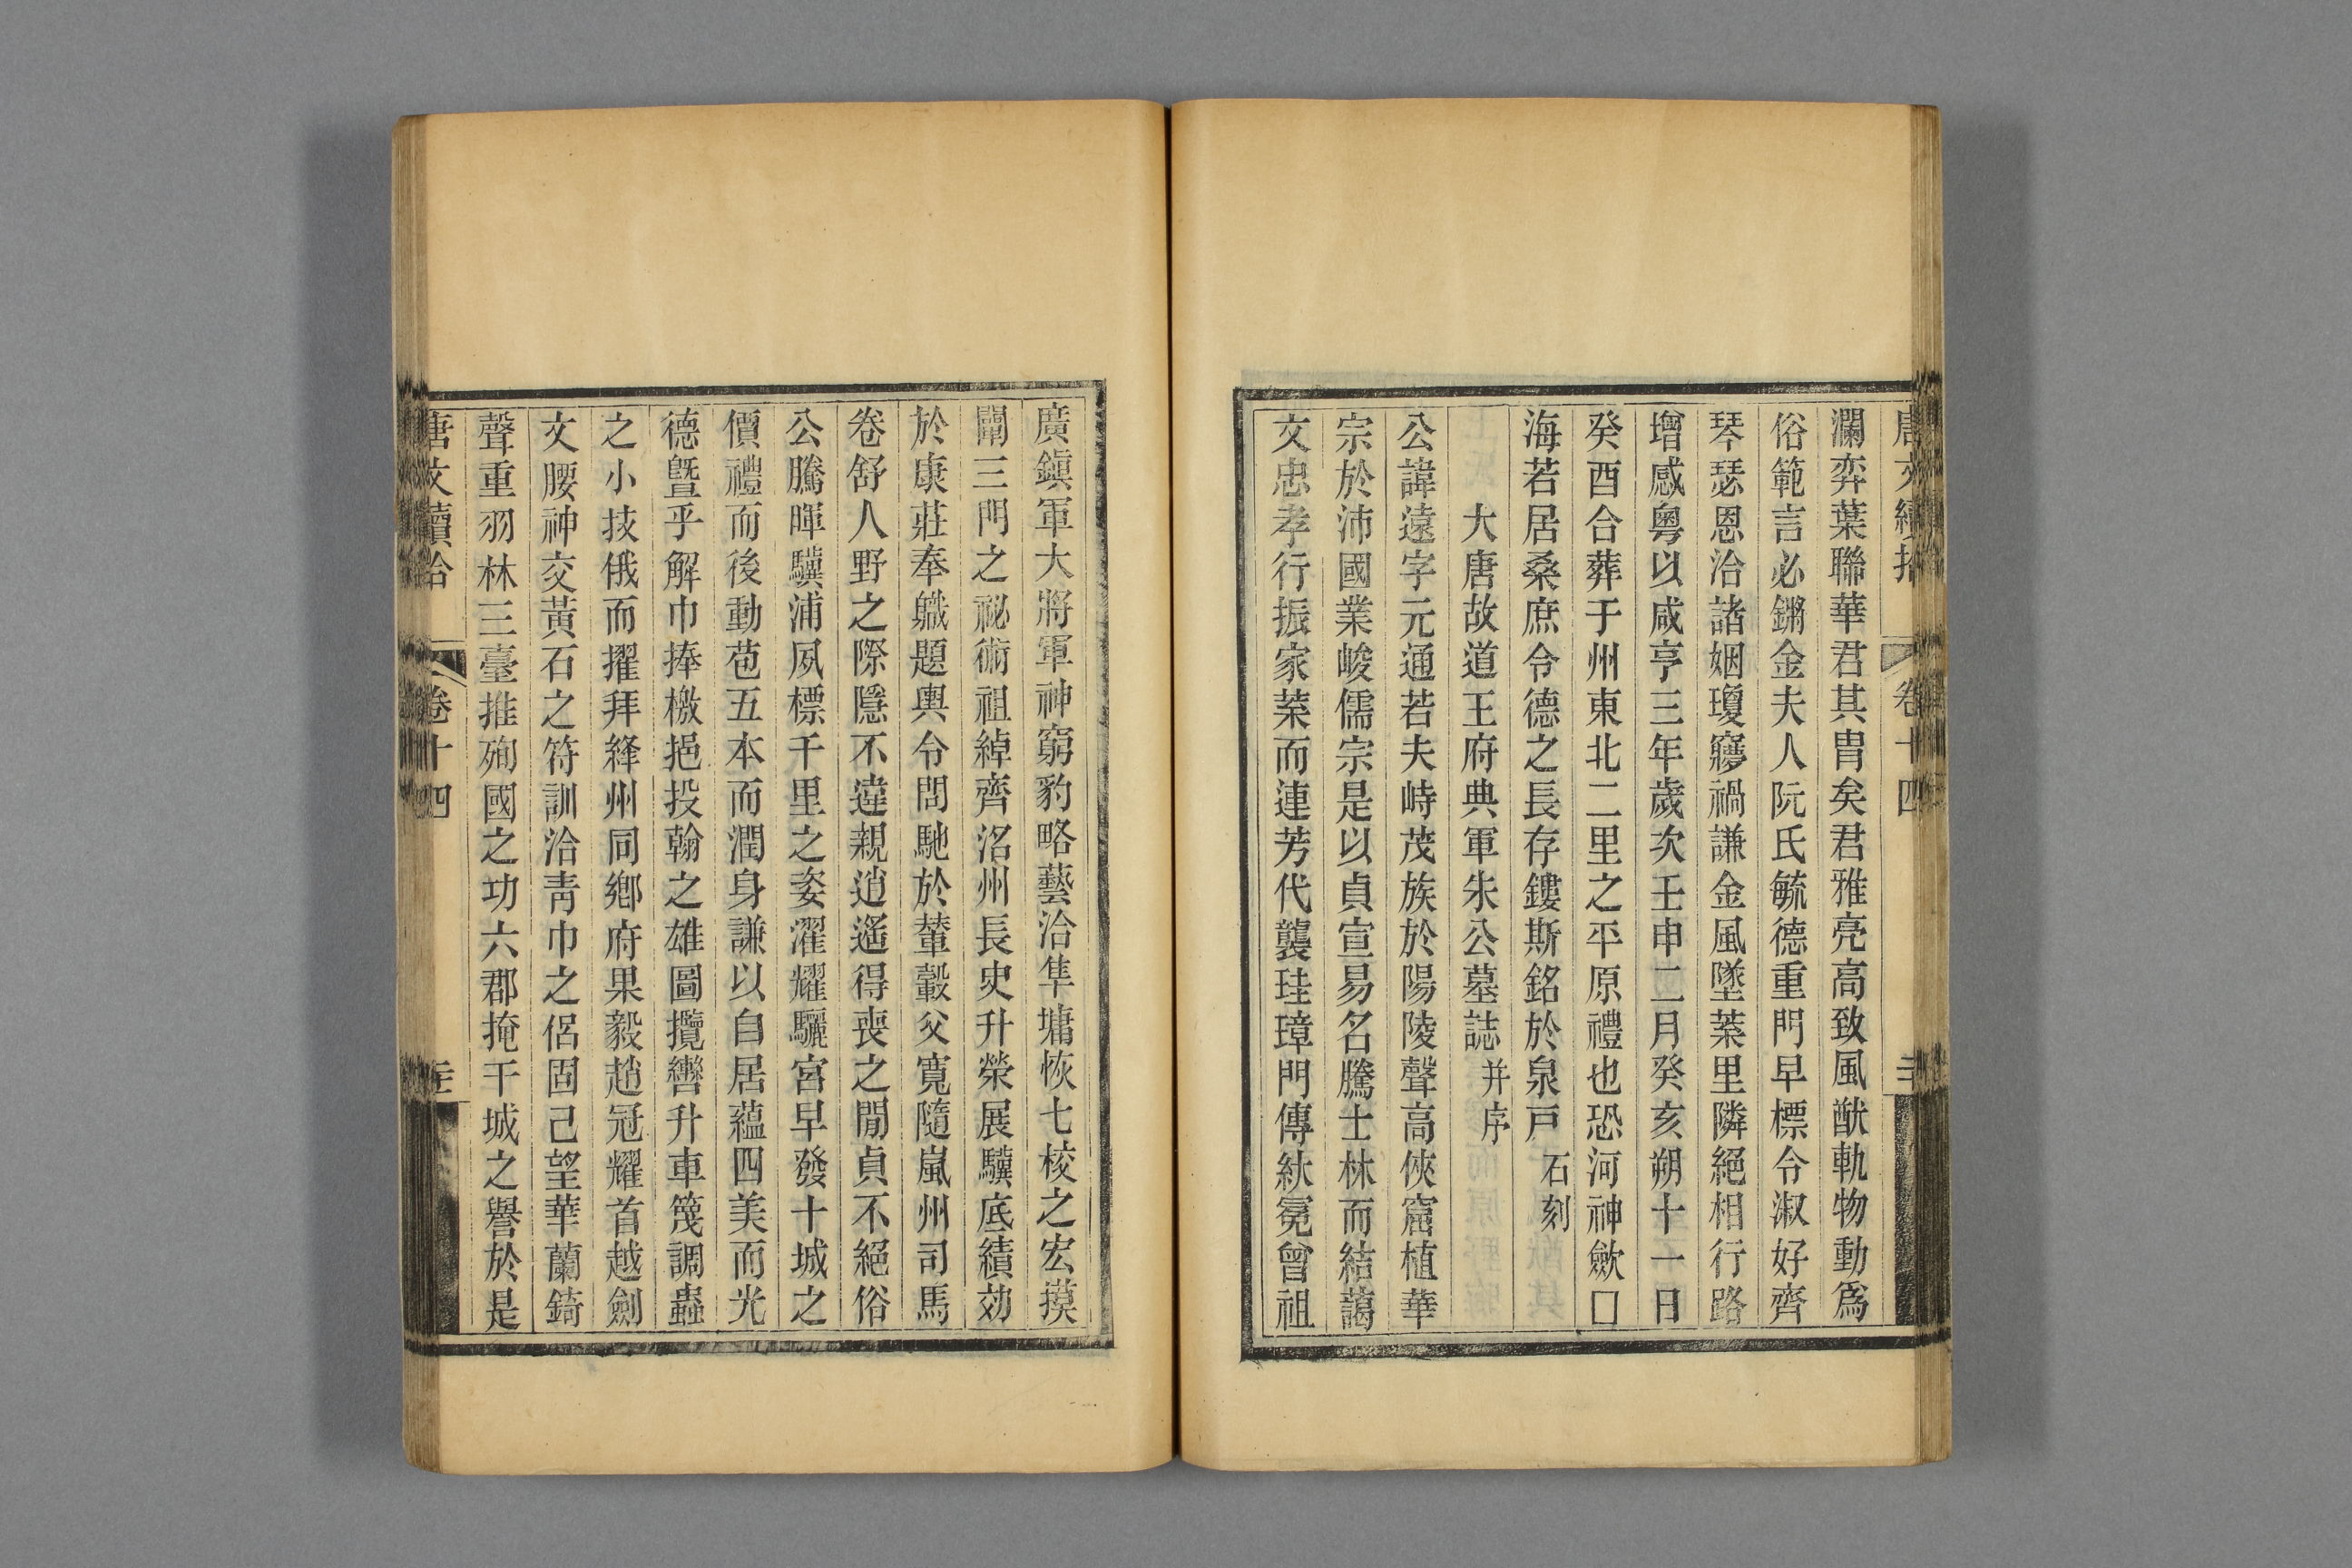 唐文續拾 卷十四
瀾弈葉聯華君其冑矣君雅亮高致風猷軌物動爲
俗範言必鏘金夫人阮氏毓德重門早標令淑好齊
琴瑟恩洽諸姻瓊寢禍謙金風墜蘂里隣絕相行路
增感粵以咸亨三年歲次壬申二月癸亥朔十一日
癸酉合葬于州東北二里之平原禮也恐河神歛□
海若居桑庶令德之長存鏤斯銘於泉戸 石刻
大唐故道王府典軍朱公墓誌 并序
公諱遠字元通若夫峙茂族於陽陵聲高俠窟植華
宗於沛國業峻儒宗是以貞宣易名騰士林而結藹
文忠孝行振家蘂而連芳代襲珪璋門傳紱冕曾祖
廣鎭軍大將軍神窮豹略藝洽隼墉恢七校之宏摸
闡三門之祕術祖綽齊洺州長史升榮展驥底績効
於康莊奉軄題輿令問馳於輦轂父寬隨嵐州司馬
卷舒人野之際隱不違親逍遙得喪之閒貞不絕俗
公騰暉驥浦夙標千里之姿濯耀驪宮早發十城之
價禮而後動苞五本而潤身謙以自居蘊四美而光
德曁乎解巾捧檄挹投翰之雄圖攬轡升車篾調蟲
之小技俄而擢拜絳州同鄉府果毅趙冠耀首越劍
文腰神交黃石之符訓洽靑巾之侶固己望華蘭錡
聲重羽林三臺推殉國之功六郡掩干城之譽於是
唐文續拾 卷十四